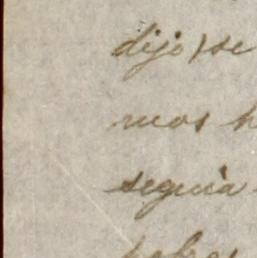 dijo) se
mos h
seguía